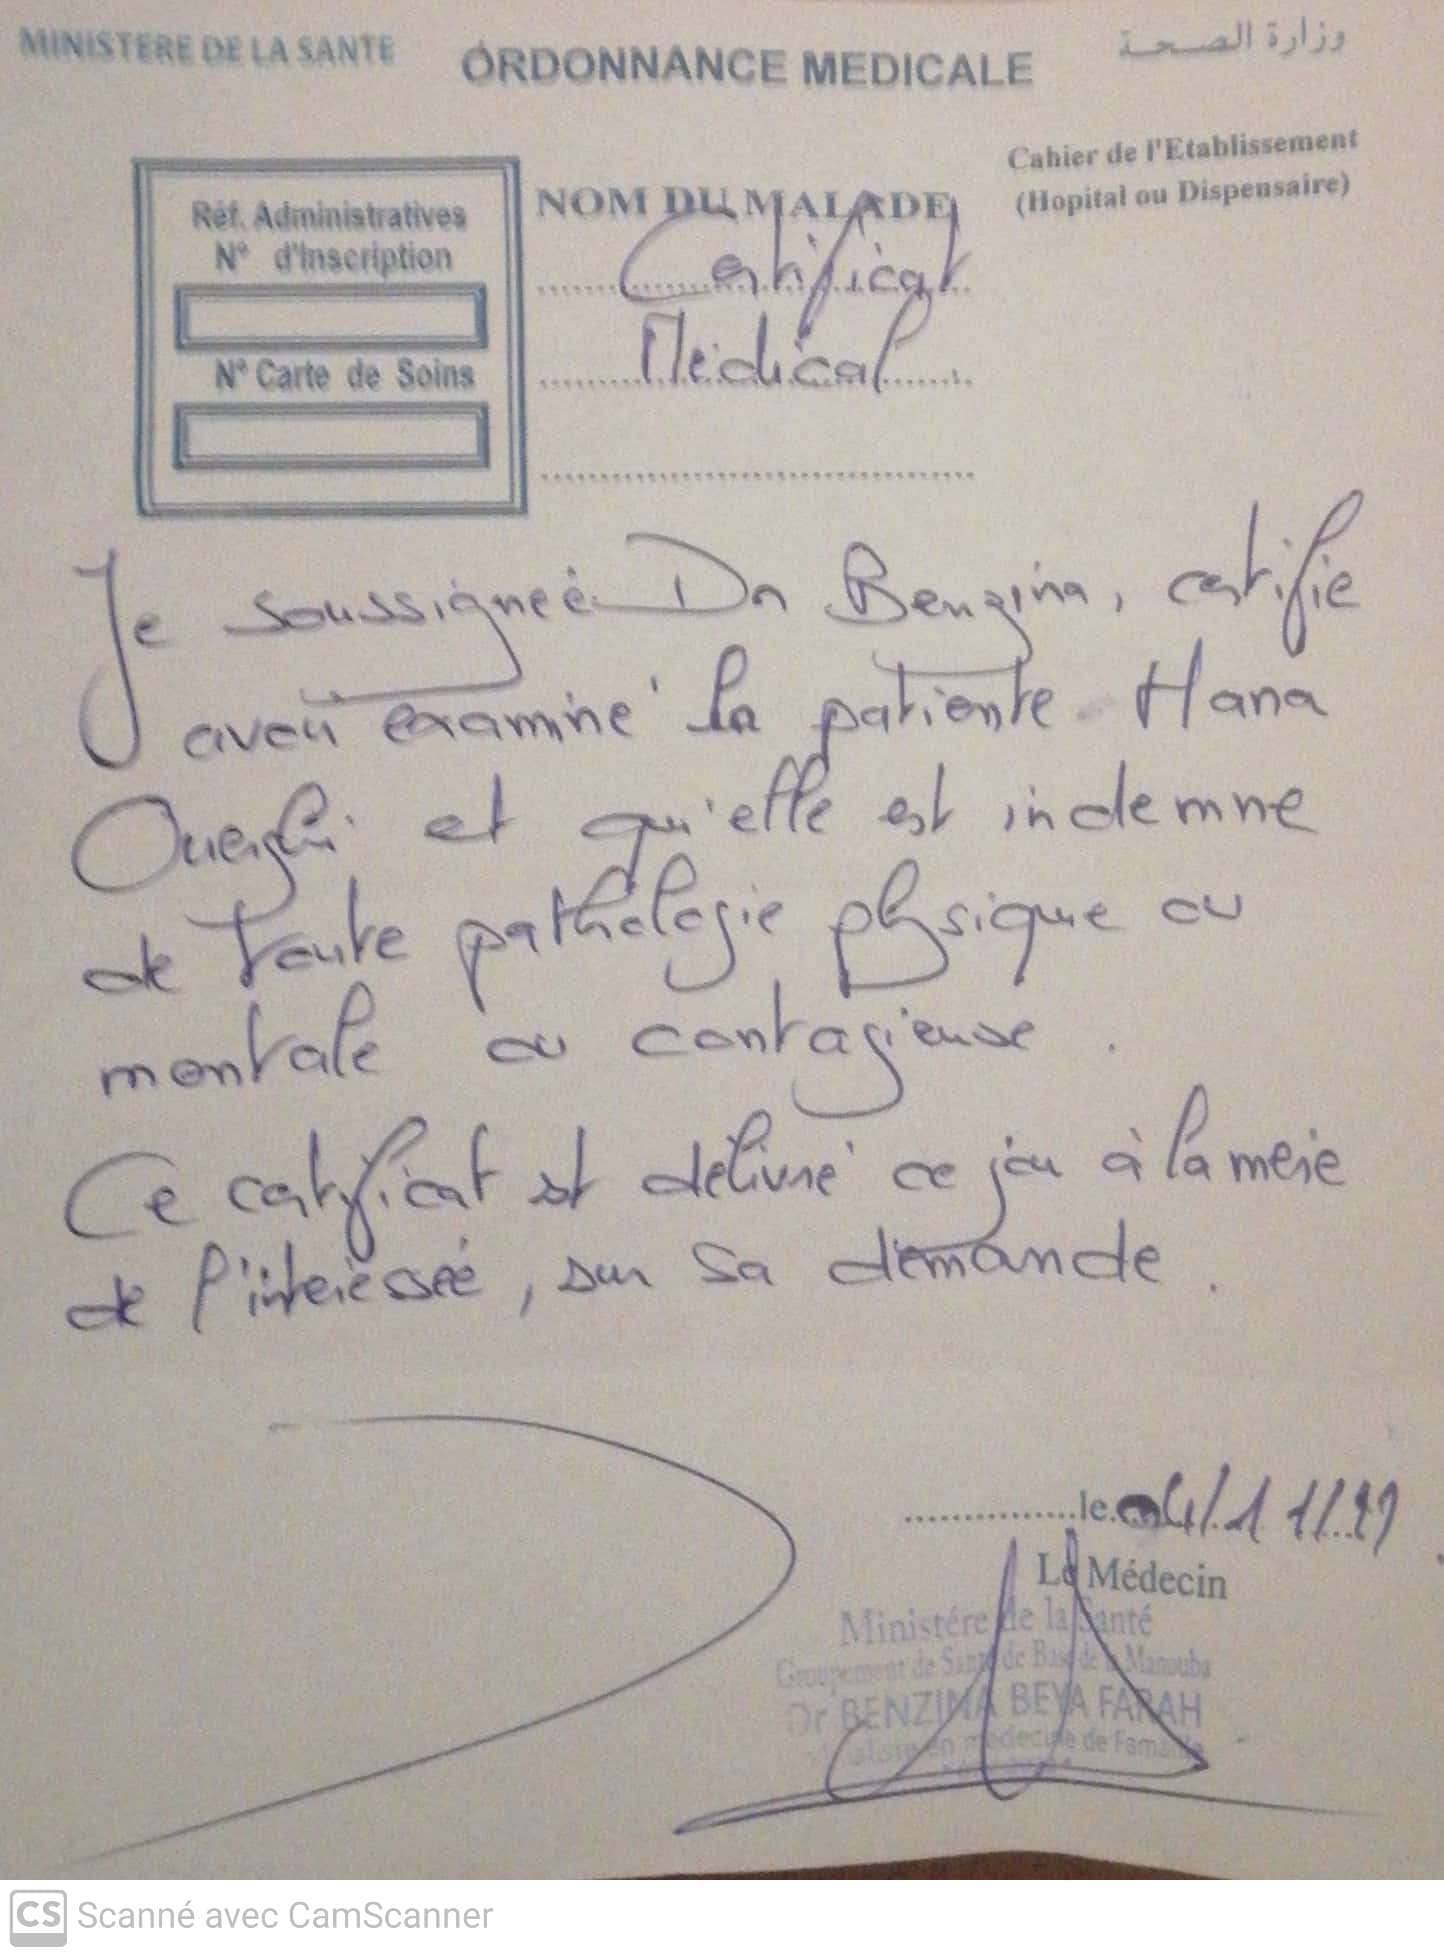 MINISTERE DE LA SANTE
ORDONNANCE MEDICALE
وزارة الصحة
Cahier de l'Etablissement
(Hopital ou Dispensaire)
Réf. Administratives
N° d'Inscription
N° Carte de Soins
NOM DU MALADE
Certificat
Médical
Je soussignée Dr Benzina, certifie
avoir examiné la patiente Hana
Oueslati et qu'elle est indemne
de toute pathologie physique ou
mentale ou contagieuse.
Ce certificat est délivré ce jour à la mère
de l'intéressée, sur sa demande.
le 04/11/
Le Médecin
Ministére de la Santé
Groupement de Santé de Base de la Manouba
Dr BENZINA BEYA FARAH
en médecine de Famille
CS Scanné avec CamScanner